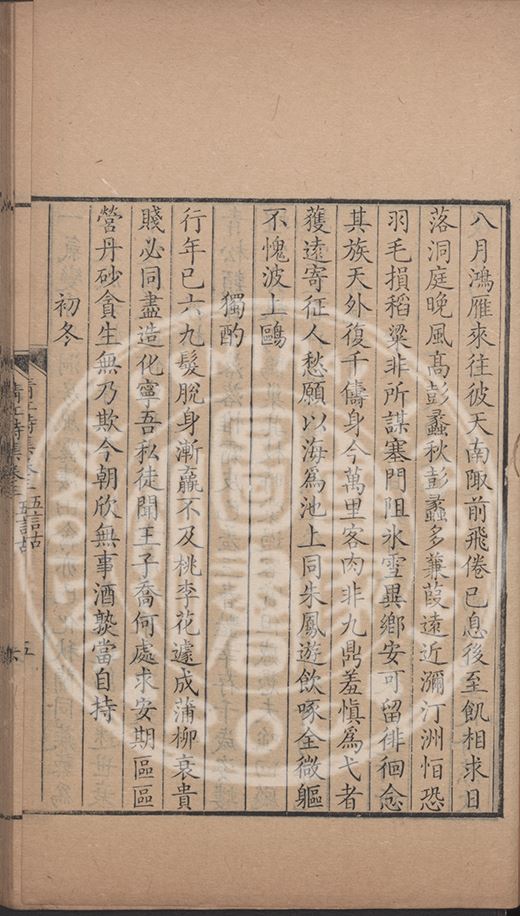 八月鴻雁來往彼天南陬前飛倦已息後至飢相求日
落洞庭晚風髙彭蠡秋彭蠡多蒹葭遠近瀰汀洲怕恐
羽毛損稻粱非所謀塞門阻氷雪異鄉安可留徘徊念
其族天外復千儔身今萬里客肉非九鼎羞慎爲弋者
獲遠寄征人愁願以海爲池上同朱鳳遊飲啄全微軀
不愧波上鷗
獨酌
行年已六九髮脫身漸羸不及桃李花遽成蒲柳衰貴
賤必同盡造化寧吾私徒聞王子喬何處求安期區區
營丹砂貪生無乃欺今朝欣無事酒熟當自持
初冬
清江詩集卷三 五言古 五